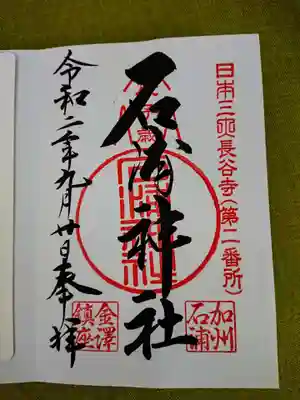 日本三大長谷寺(第二番所)
加州
石浦
石浦神社
金澤
鎮座
令和二年九月廿日奉拝